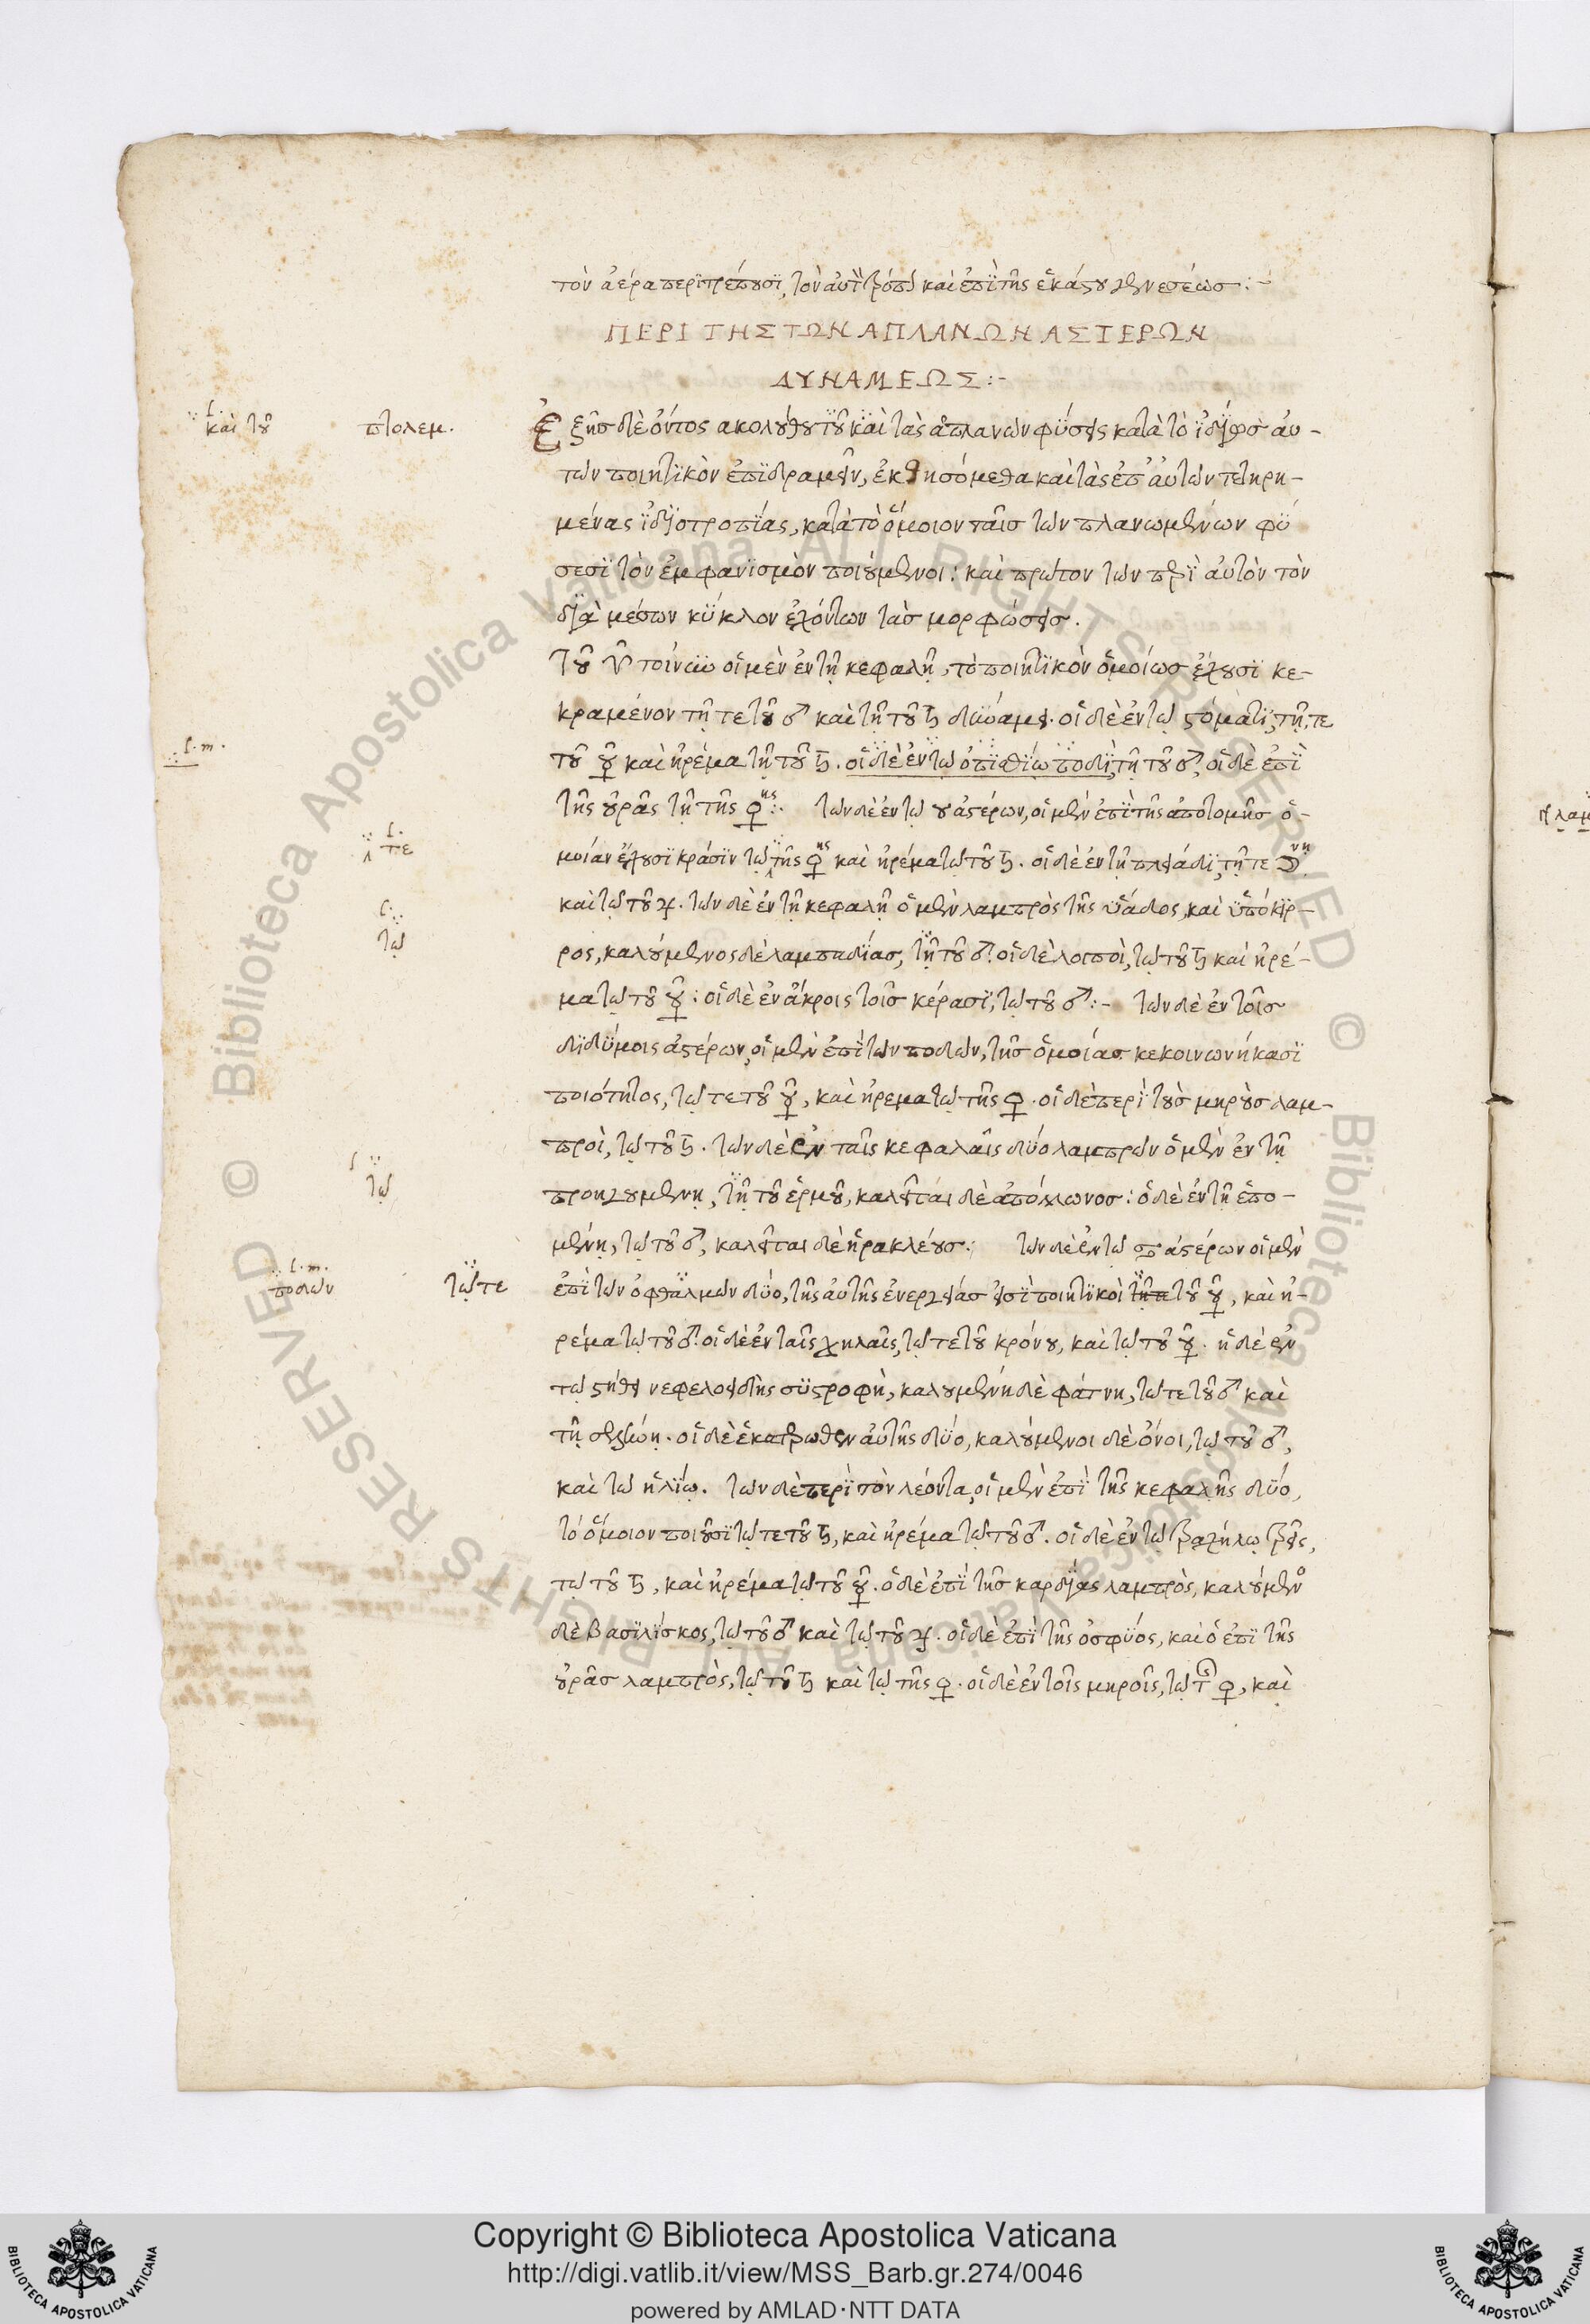 τὸν ἀέρα περιτρέπουσι, τὸν αὐτὸν τρόπον καὶ ἐπὶ τῆς ἑκάστου γενεσέως:-
ΠΕΡΙ ΤΗΣ ΤΩΝ ΑΠΛΑΝΩΝ ΑΣΤΕΡΩΝ
ΔΥΝΑΜΕΩΣ:-
Ἑξῆς δὲ ὄντος ἀκολούθου τοῦ καὶ τὰς ἀπλανῶν φύσεις κατὰ τὸ ἰδίως αὐ-
τῶν ποιητικὸν ἐπιδραμεῖν, ἐκθησόμεθα καὶ τὰς ἐπ' αὐτῶν τετηρη-
μένας ἰδιοτροπίας, κατὰ τὸ ὅμοιον ταῖς τῶν πλανωμένων φύ
σεσι τὸν ἐμφανισμὸν ποιούμενοι: καὶ πρῶτον τῶν περὶ αὐτὸν τὸν
διὰ μέσων κύκλον ἐχόντων τὰς μορφώσεις.
τοῦ ♈ τοίνυν οἱ μὲν ἐν τῇ κεφαλῇ, τὸ ποιητικὸν ὁμοίως ἔχουσι κε-
κραμένον τῇ τε τοῦ ♂ καὶ τῇ τοῦ ♄ δυνάμει. οἱ δὲ ἐν τῷ στόματι, τῇ τε
τοῦ ☿ καὶ ἠρέμα τῇ τοῦ ♄. οἱ δὲ ἐν τῷ ὀπιθίῳ ποδὶ, τῇ τοῦ ♂, οἱ δὲ ἐπὶ
τῆς οὐρᾶς τῇ τῆς ♀ης:. τῶν δὲ ἐν τῷ ♉ ἀστέρων, οἱ μὲν ἐπὶ τῆς ἀποτομῆς ὁ-
μοίαν ἔχουσι κράσιν τῷ τῆς ♀ης καὶ ἠρέμα τῷ τοῦ ♄. οἱ δὲ ἐν τῇ πλειάδι, τῇ τε ☽νη
καὶ τῷ τοῦ ♃. τῶν δὲ ἐν τῇ κεφαλῇ ὁ μὲν λαμπρὸς τῆς ὑάδος, καὶ ὑπόκιρ-
ρος, καλούμενος δὲ λαμπαδίας, τῇ τοῦ ♂. οἱ δὲ λοιποὶ, τῷ τοῦ ♄ καὶ ἠρέ-
μα τῷ τοῦ ☿: οἱ δὲ ἐν ἄκροις τοῖς κέρασι, τῷ τοῦ ♂:- τῶν δὲ ἐν τοῖς
διδύμοις ἀστέρων, οἱ μὲν ἐπὶ τῶν ποδῶν, τῆς ὁμοίας κεκοινωνήκασι
ποιότητος, τῷ τε τοῦ ☿, καὶ ἠρεμα τῷ τῆς ♀. οἱ δὲ περὶ τοὺς μηροὺς λαμ-
προὶ, τῷ τοῦ ♄. τῶν δὲ ἐν ταῖς κεφαλαῖς δύο λαμπρῶν ὁ μὲν ἐν τῇ
προηγουμένῃ, τῇ τοῦ ἑρμοῦ, καλεῖται δὲ ἀπόλλωνος: ὁ δὲ ἐν τῇ ἑπο-
μένῃ, τῷ τοῦ ♂, καλεῖται δὲ ἡρακλέους: τῶν δὲ ἐν τῷ ♋ ἀστέρων οἱ μὲν
ἐπὶ τῶν ὀφθαλμῶν δύο, τῆς αὐτῆς ἐνεργείας εἰσὶ ποιητικοὶ τῇ τε τοῦ ☿, καὶ ἠ-
ρέμα τῷ τοῦ ♂. οἱ δὲ ἐν ταῖς χηλαῖς, τῷ τε τοῦ κρόνου, καὶ τῷ τοῦ ☿. ἡ δὲ ἐν
τῷ στήθει νεφελοειδὴς συστροφὴ, καλουμένη δὲ φάτνη, τῷ τε τοῦ ♂ καὶ
τῇ σελήνῃ. οἱ δὲ ἑκατέρωθεν αὐτῆς δύο, καλούμενοι δὲ ὄνοι, τῷ τοῦ ♂,
καὶ τῷ ἡλίῳ. τῶν δὲ περὶ τὸν λέοντα, οἱ μὲν ἐπὶ τῆς κεφαλῆς δύο,
τὸ ὅμοιον ποιοῦσι τῷ τε τοῦ ♄, καὶ ἠρέμα τῷ τοῦ ♂. οἱ δὲ ἐν τῷ τραχήλῳ τρεῖς,
τῷ τοῦ ♄, καὶ ἠρέμα τῷ τοῦ ☿. ὁ δὲ ἐπὶ τῆς καρδίας λαμπρὸς, καλούμενο
δὲ βασιλίσκος, τῷ τοῦ ♂ καὶ τῷ τοῦ ♃. οἱ δὲ ἐπὶ τῆς ὀσφύος, καὶ ὁ ἐπὶ τῆς
οὐρᾶς λαμπρὸς, τῷ τοῦ ♄ καὶ τῷ τῆς ♀. οἱ δὲ ἐν τοῖς μηροῖς, τῷ τῆς ♀, καὶ
καὶ τοῦ πτολεμ.
f.m.
f. τε
f. τῷ
f τῷ
f.m. ποδῶν τῷ τε
Copyright © Biblioteca Apostolica Vaticana
http://digi.vatlib.it/view/MSS_Barb.gr.274/0046
powered by AMLAD·NTT DATA
BIBLIOTECA APOSTOLICA VATICANA
BIBLIOTECA APOSTOLICA VATICANA
© Biblioteca Apostolica Vaticana ALL RIGHTS RESERVED
© Biblioteca Apostolica Vaticana ALL RIGHTS RESERVED